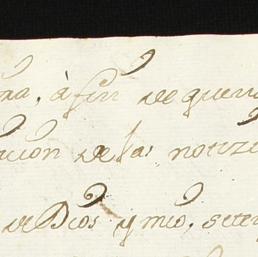 ma, à fin de quem
cion de las notizi
de Dios y mio, se ter